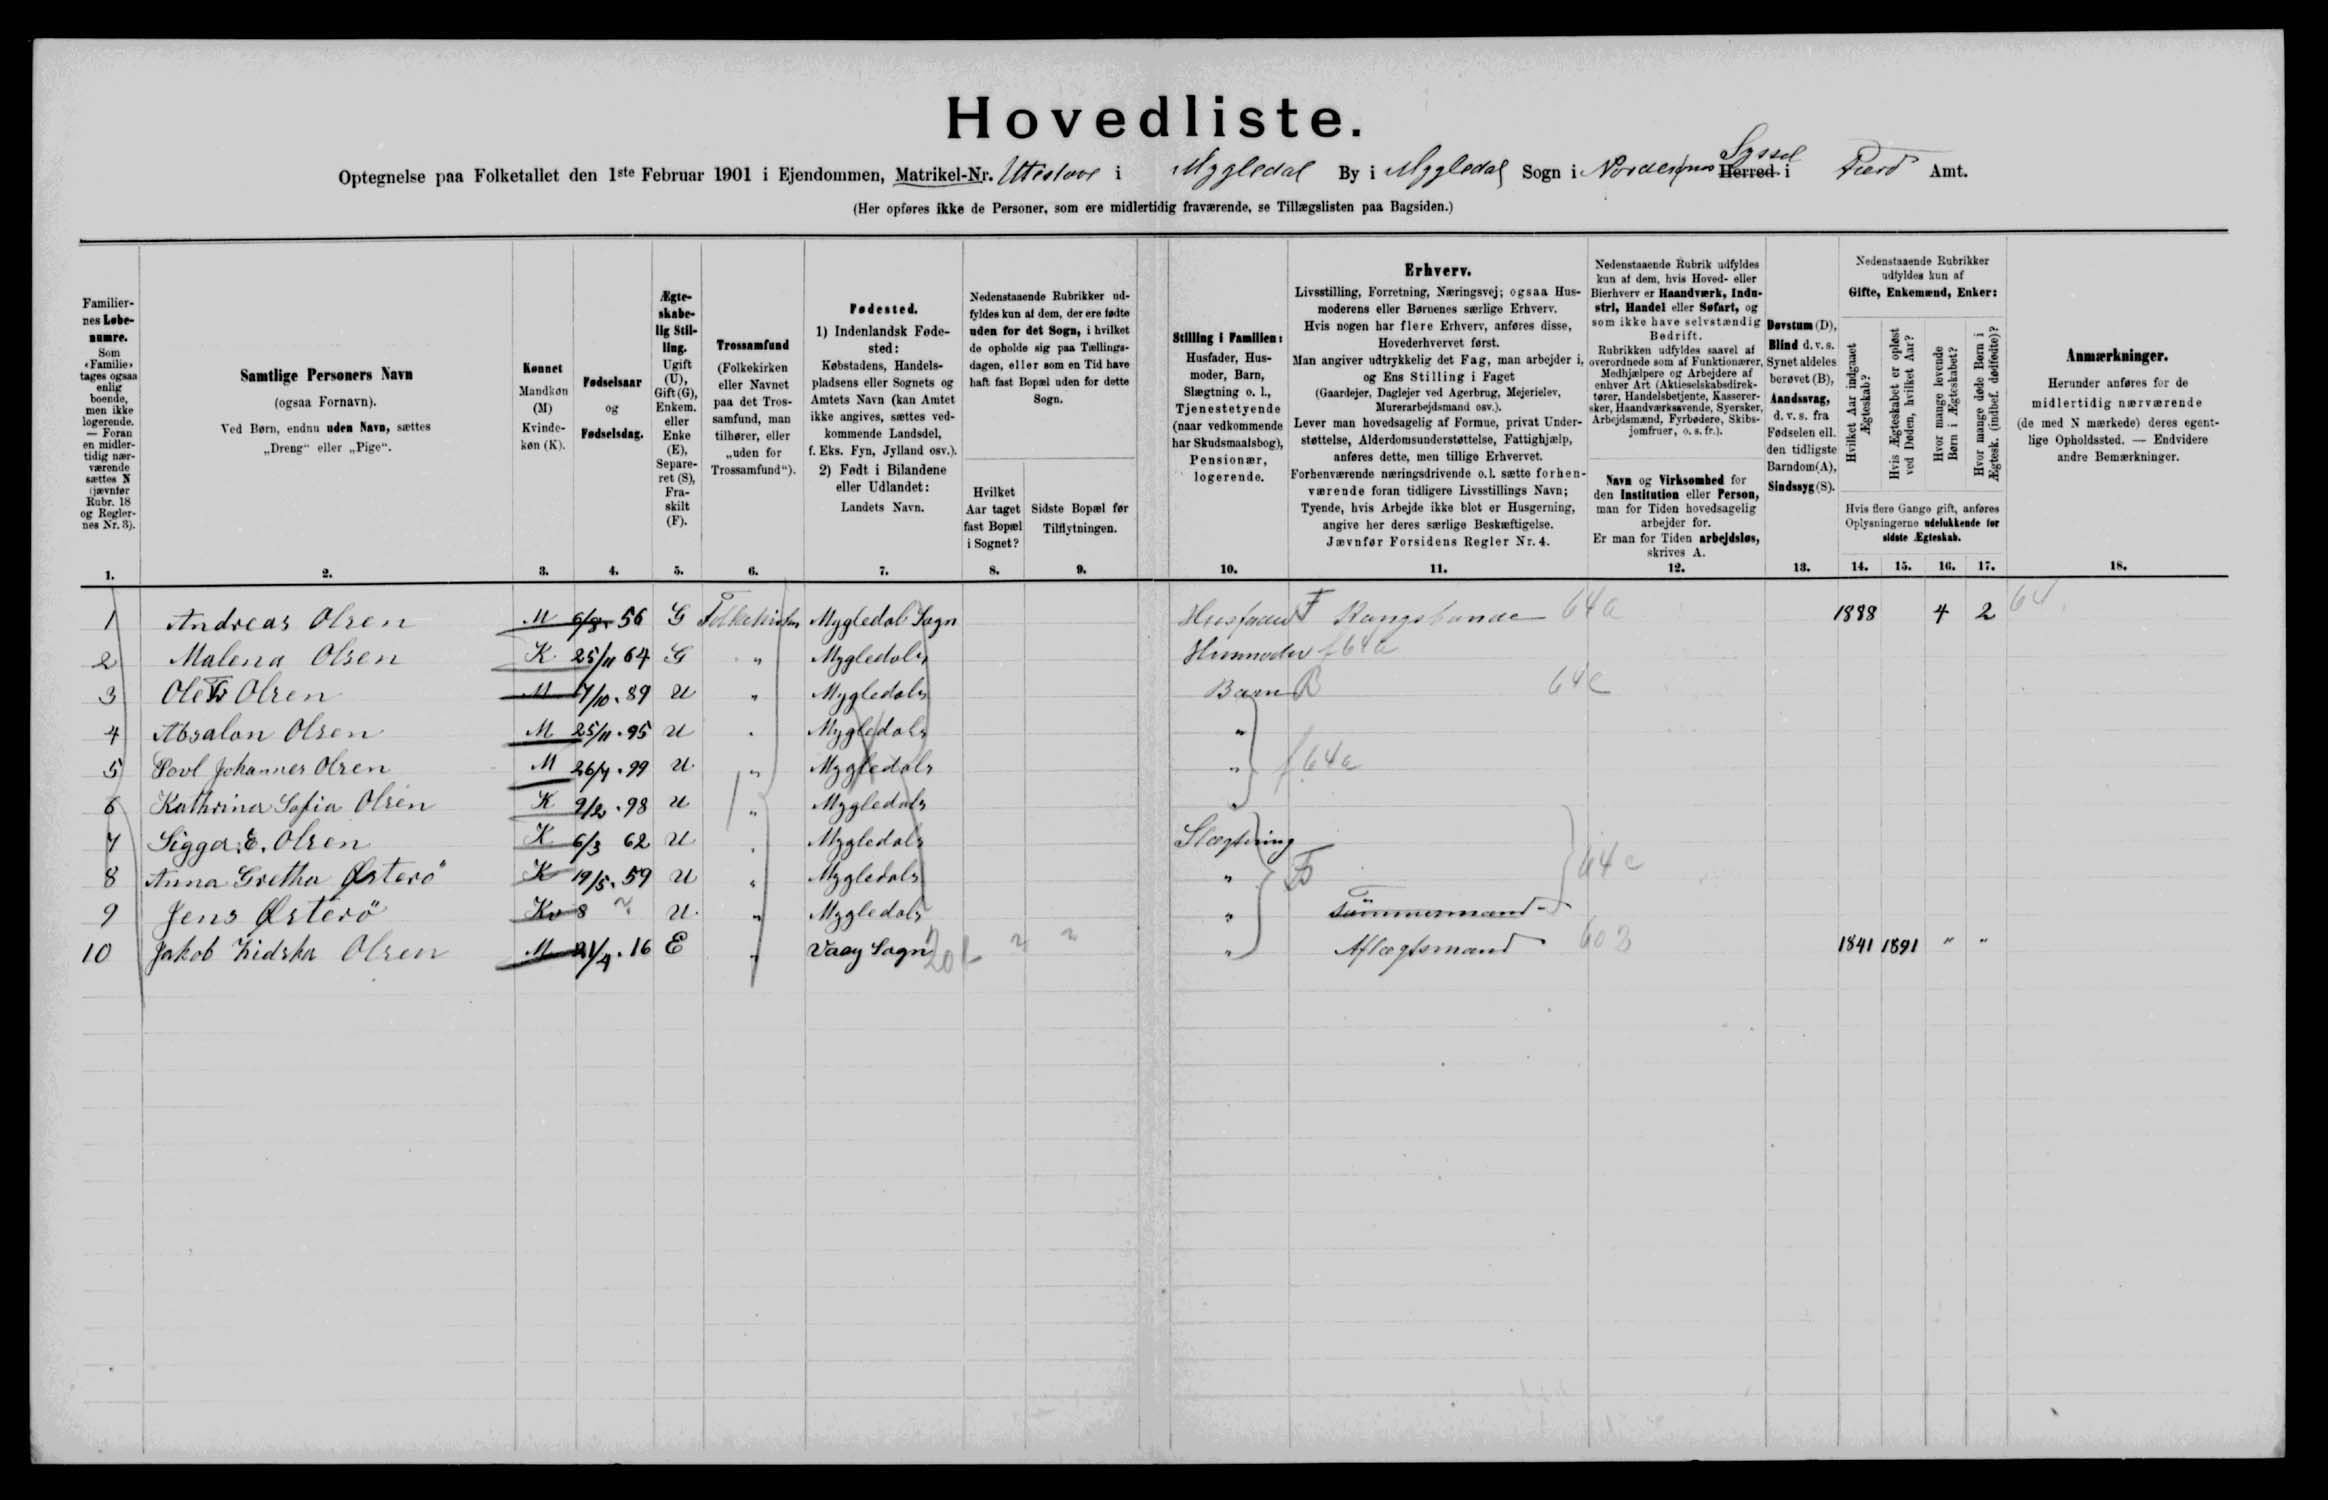 Hovedliste.
Optegnelse paa Folketallet den 1ste Februar 1901 i Ejendommen, Matrikel-Nr. Uttistove i Mygledal By i Mygledals Sogn i Norderøernes Herred Syssel i Færø Amt.
(Her opføres ikke de Personer, som ere midlertidig fraværende, se Tillægslisten paa Bagsiden.)
Familier-
nes Løbe-
numre.
Som
«Familie»
tages ogsaa
enlig
boende,
men ikke
logerende.
— Foran
en midler-
tidig nær-
værende
sættes N
(jævnfør
Rubr. 18
og Regler-
nes Nr. 3).
1.
Samtlige Personers Navn
(ogsaa Fornavn).
Ved Børn, endnu uden Navn, sættes
„Dreng“ eller „Pige“.
2.
Kønnet
Mandkøn
(M)
Kvinde-
køn (K).
3.
Fødselsaar
og
Fødselsdag.
4.
Ægte-
skabe-
lig Stil-
ling.
Ugift
(U),
Gift (G),
Enkem.
eller
Enke
(E),
Separe-
ret (S),
Fra-
skilt
(F).
5.
Trossamfund
(Folkekirken
eller Navnet
paa det Tros-
samfund, man
tilhører, eller
„uden for
Trossamfund“).
6.
Fødested.
1) Indenlandsk Føde-
sted:
Købstadens, Handels-
pladsens eller Sognets og
Amtets Navn (kan Amtet
ikke angives, sættes ved-
kommende Landsdel,
f. Eks. Fyn, Jylland osv.).
2) Født i Bilandene
eller Udlandet:
Landets Navn.
7.
Nedenstaaende Rubrikker ud-
fyldes kun af dem, der ere fødte
uden for det Sogn, i hvilket
de opholde sig paa Tællings-
dagen, eller som en Tid have
haft fast Bopæl uden for dette
Sogn.
Hvilket
Aar taget
fast Bopæl
i Sognet?
8.
Sidste Bopæl før
Tilflytningen.
9.
Stilling i Familien:
Husfader, Hus-
moder, Barn,
Slægtning o. l.,
Tjenestetyende
(naar vedkommende
har Skudsmaalsbog),
Pensionær,
logerende.
10.
Erhverv.
Livsstilling, Forretning, Næringsvej; ogsaa Hus-
moderens eller Børnenes særlige Erhverv.
Hvis nogen har flere Erhverv, anføres disse,
Hovederhvervet først.
Man angiver udtrykkelig det Fag, man arbejder i,
og Ens Stilling i Faget
(Gaardejer, Daglejer ved Agerbrug, Mejerielev,
Murerarbejdsmand osv.).
Lever man hovedsagelig af Formue, privat Under-
støttelse, Alderdomsunderstøttelse, Fattighjælp,
anføres dette, men tillige Erhvervet.
Forhenværende næringsdrivende o.l. sætte forhen-
værende foran tidligere Livsstillings Navn;
Tyende, hvis Arbejde ikke blot er Husgerning,
angive her deres særlige Beskæftigelse.
Jævnfør Forsidens Regler Nr. 4.
11.
Nedenstaaende Rubrik udfyldes
kun af dem, hvis Hoved- eller
Bierhverv er Haandværk, Indu-
stri, Handel eller Søfart, og
som ikke have selvstændig
Bedrift.
Rubrikken udfyldes saavel af
overordnede som af Funktionærer,
Medhjælpere og Arbejdere af
enhver Art (Aktieselskabsdirek-
tører, Handelsbetjente, Kasserer-
sker, Haandværkssvende, Syersker,
Arbejdsmænd, Fyrbødere, Skibs-
jomfruer, o. s. fr.).
Navn og Virksomhed for
den Institution eller Person,
man for Tiden hovedsagelig
arbejder for.
Er man for Tiden arbejdsløs,
skrives A.
12.
Døvstum (D),
Blind d. v. s.
Synet aldeles
berøvet (B),
Aandssvag,
d. v. s. fra
Fødselen ell.
den tidligste
Barndom (A),
Sindssyg (S).
13.
Nedenstaaende Rubrikker
udfyldes kun af
Gifte, Enkemænd, Enker:
Hvilket Aar indgaaet
Ægteskab?
Hvis Ægteskabet er opløst
ved Døden, hvilket Aar?
Hvor mange levende
Børn i Ægteskabet?
Hvor mange døde Børn i
Ægtesk. (indbef. dødfødte)?
Hvis flere Gange gift, anføres
Oplysningerne udelukkende for
sidste Ægteskab.
14. 15. 16. 17.
Anmærkninger.
Herunder anføres for de
midlertidig nærværende
(de med N mærkede) deres egent-
lige Opholdssted. — Endvidere
andre Bemærkninger.
18.
1 Andreas Olsen M 6/8. 56 G Folkekirken Mygledals Sogn Husfader F Kongsbonde 64a 1888 4 2 64
2 Malena Olsen K 25/11 64 G " Mygledals Husmoder f 64a
3 Ole Olsen M 7/10. 89 U " Mygledals Barn B 64c
4 Absalon Olsen M 25/11. 95 U " Mygledals "
5 Povl Johannes Olsen M 26/7. 99 U " Mygledals " f 64a
6 Kathrina Sofia Olsen K 9/2. 98 U " Mygledals "
7 Sigga E. Olsen K 6/3 62 U " Mygledals Slægtning
8 Anna Gretha Østerö K 19/5. 59 U " Mygledals " 64c
9 Jens Østerö Kv 8 ? U " Mygledals " Tömmermand
10 Jakob Zidska Olsen M 21/4. 16 E " Vaag Sogn " Aflægtsmand 60 1841 1891 " "